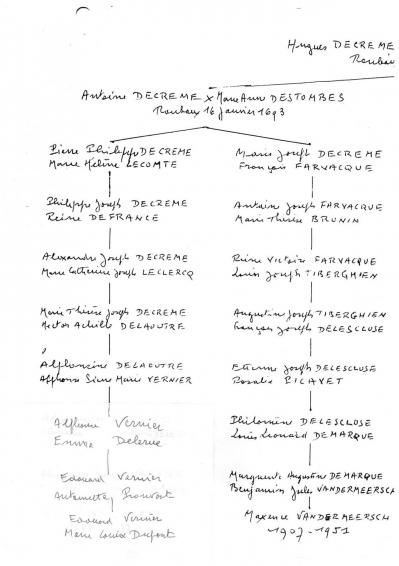 Hugues DECREME
Antoine DECREME x Marie Anne DESTOMBES
Roubaix 16 janvier 1693
Pierre Philippe DECREME
Marie Hélène LECOMTE
Marie Joseph DECREME
François FARVACQUE
Philippe Joseph DECREME
Reine DEFRANCE
Antoine Joseph FARVACQUE
Marie Thérèse BRUNIN
Alexandre Joseph DECREME
Marie Catherine Joseph LECLERCQ
Reine Victoire FARVACQUE
Louis Joseph TIBERGHIEN
Marie Thérèse Joseph DECREME
Hector Achille DELAOUTRE
Augustine Joseph TIBERGHIEN
François Joseph DELESCLUSE
Alphonsine DELAOUTRE
Alphonse Marie VERNIER
Etienne Joseph DELESCLUSE
Rosalie PICAVET
Alphonse Vernier
Emma Delerue
Philomène DELESCLUSE
Louis Léonard DEMARQUE
Edouard Vernier
Antoinette Prouvost
Marguerite Augustine DEMARQUE
Benjamin Jules VANDERMEERSCH
Edouard Vernier
Marie Louise Dupont
Maxence VANDERMEERSCH
1907-1951